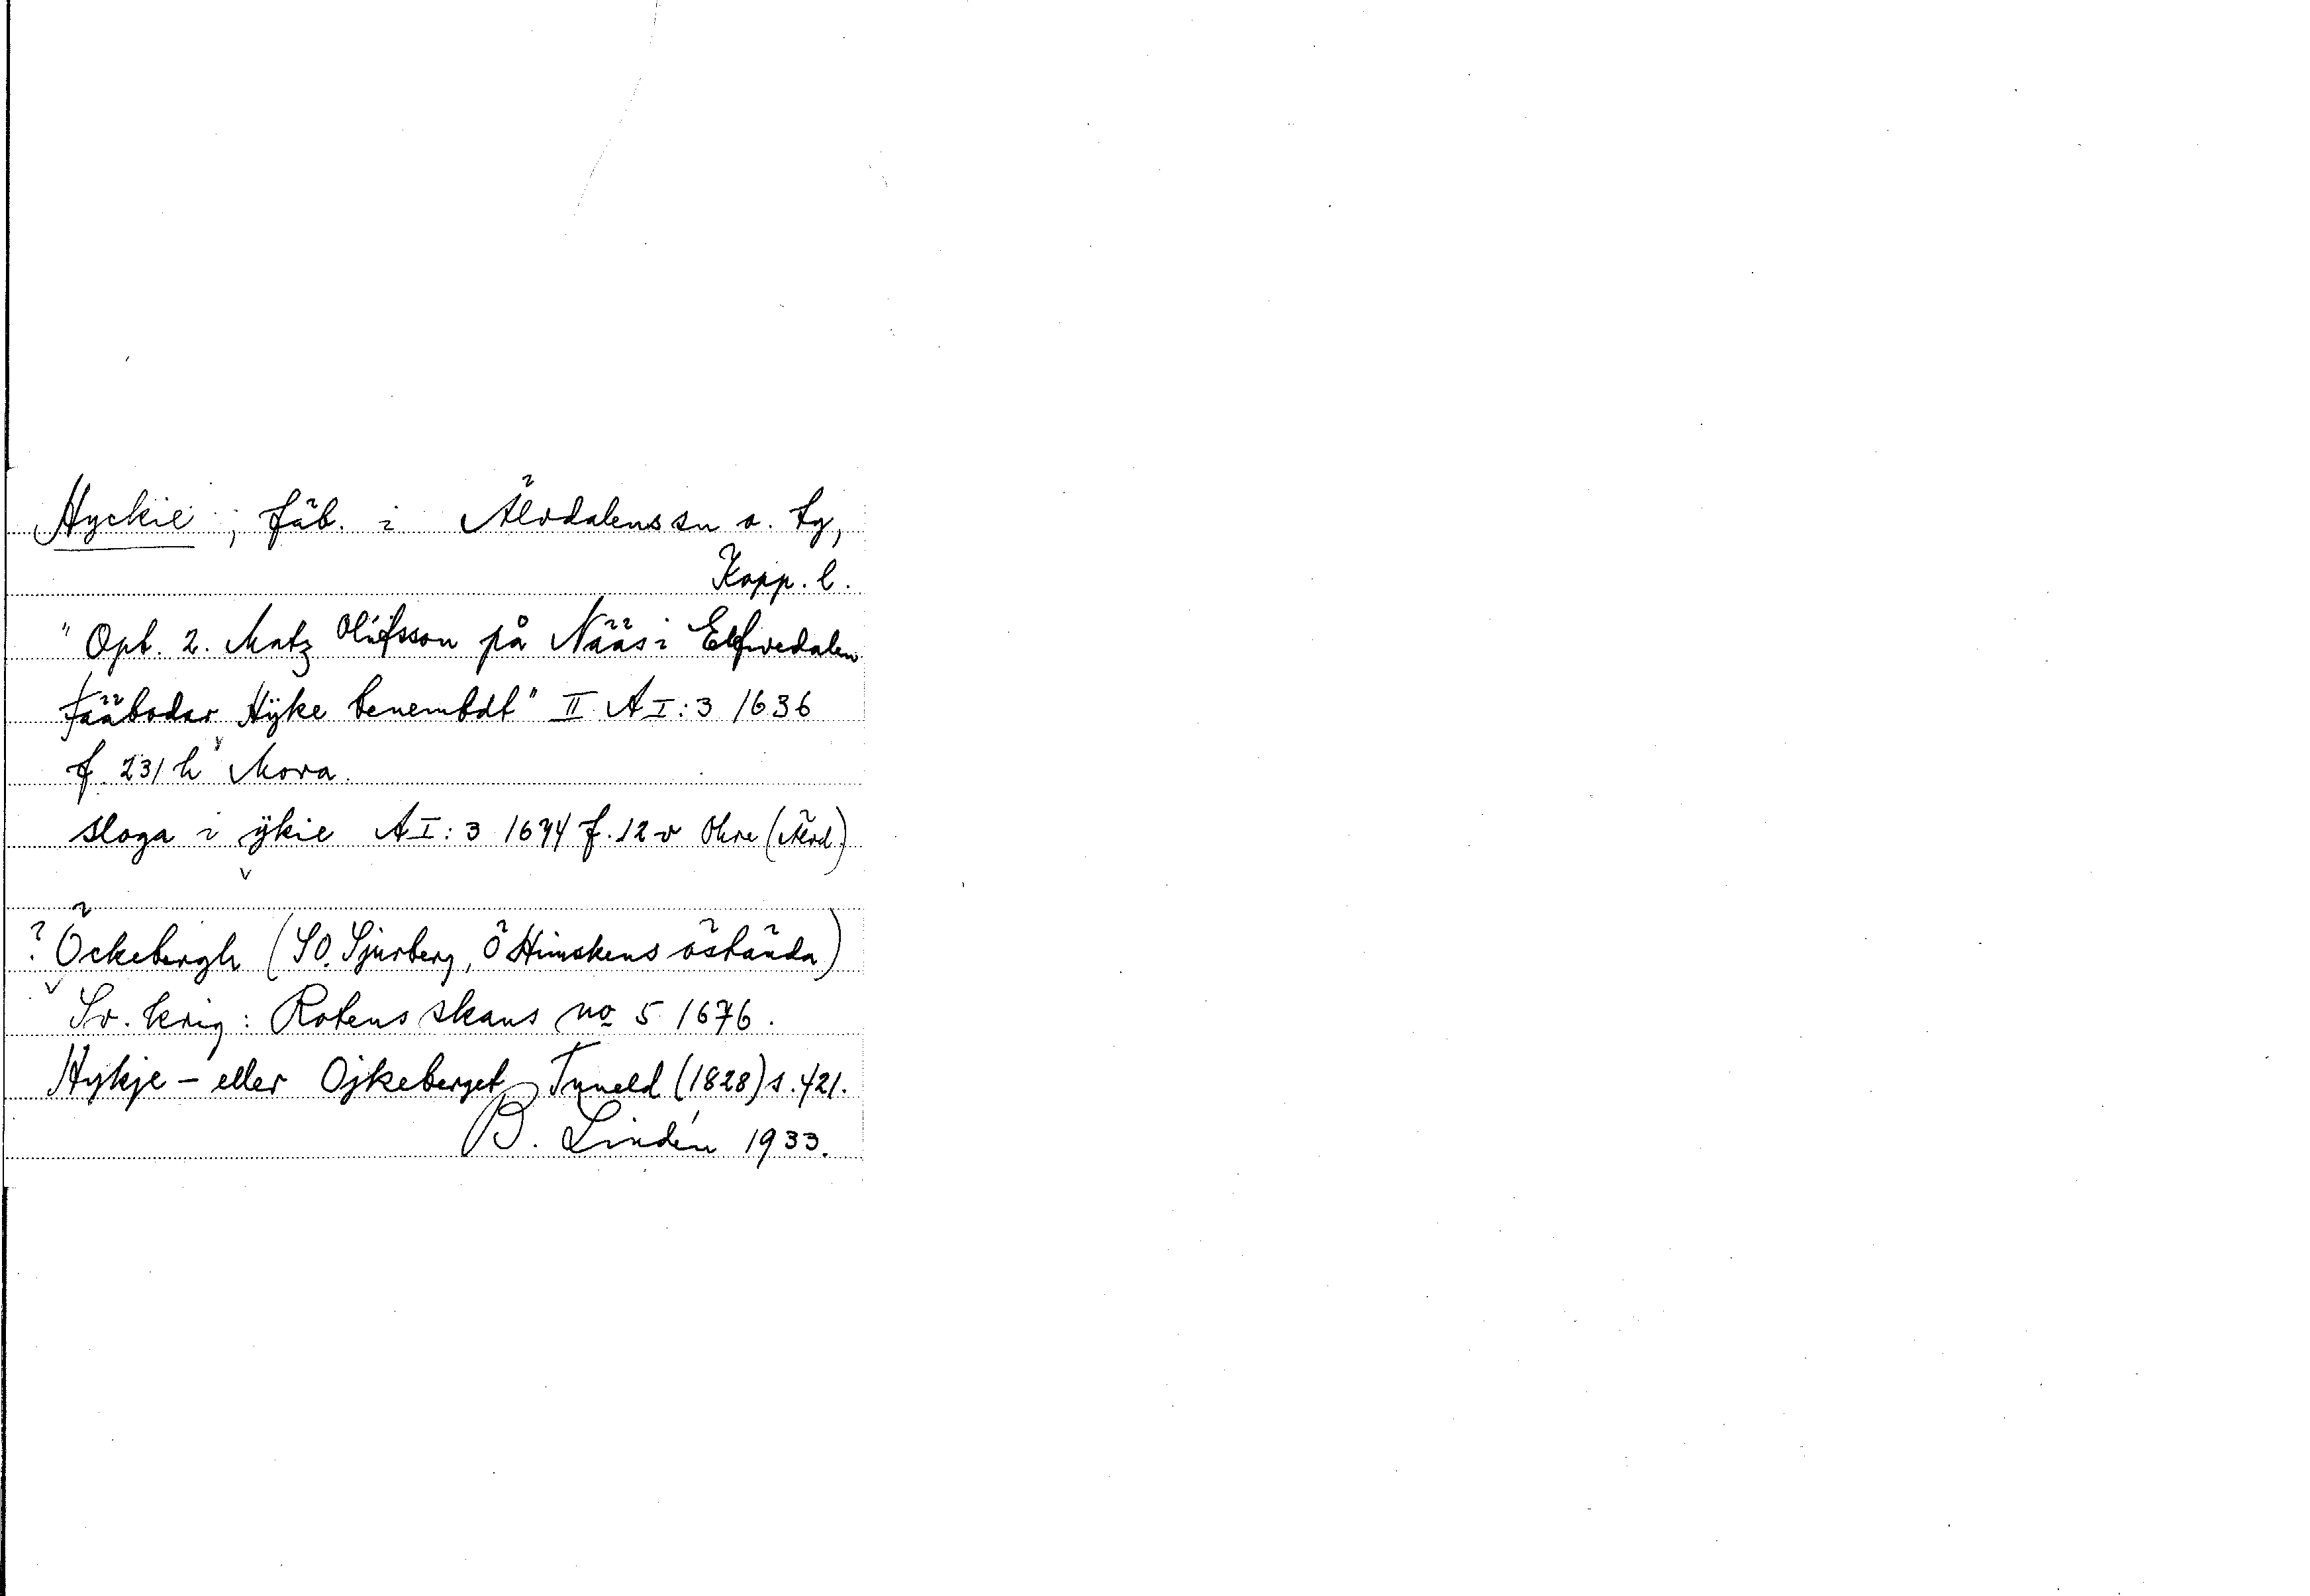 Hyckie, fäb. i Älvdalens sn o. tg,
Kopp. l.
"Opt. 2. Matz Olufsson på Nääs i Elfwedalen
Fääbodar Hÿke benembdt" II A I:3 1636
f. 231 h Mora.
sloga i ÿkie A I:3 1674 f. 12 v Ohre (Älvd.)
? Öckebergh (SO. Sjurberg, Ö Himskens östända)
Sv. krig: Rotens skans no 5 1676.
Hykje- eller Ojkeberget Tuneld (1828) s. 421.
B. Lindén 1933.